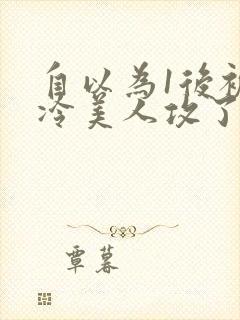 自以為1後被
冷美人攻了
覃暮